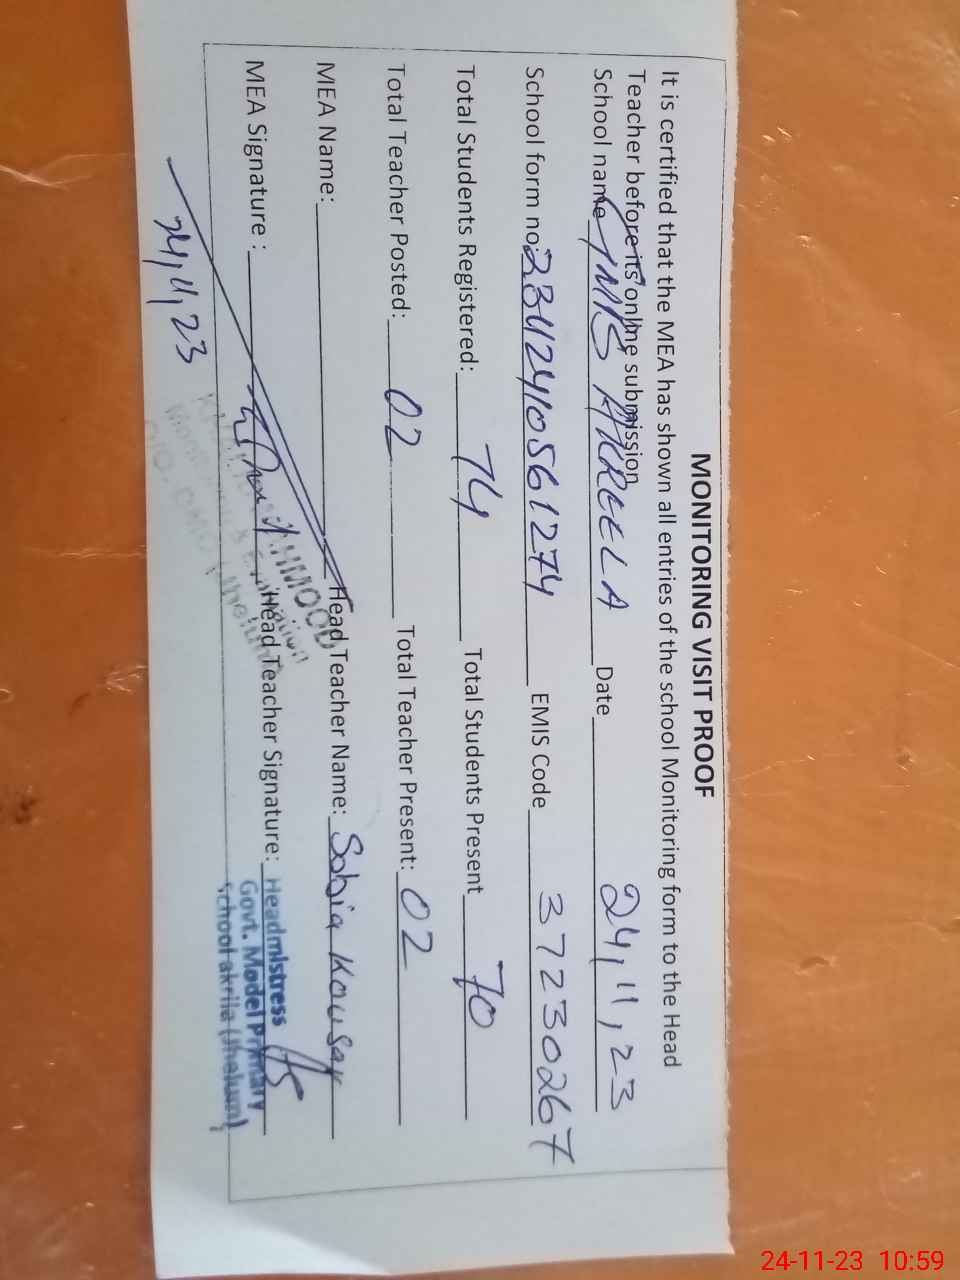 MONITORING VISIT PROOF
It is certified that the MEA has shown all entries of the school Monitoring form to the Head
Teacher before its online submission
School name GMPS AKREELA Date 24,11,23
School form no: 23112410561274 EMIS Code 37230267
Total Students Registered: 74 Total Students Present 70
Total Teacher Posted: 02 Total Teacher Present: 02
MEA Name: Head Teacher Name: Sobia Kousar
MEA Signature : Head Teacher Signature:
24,11,23
MAHMOOD
Monitoring & Evaluation
Headmistress
Govt. Model Primary
School akrila (Jhelum)
24-11-23 10:59